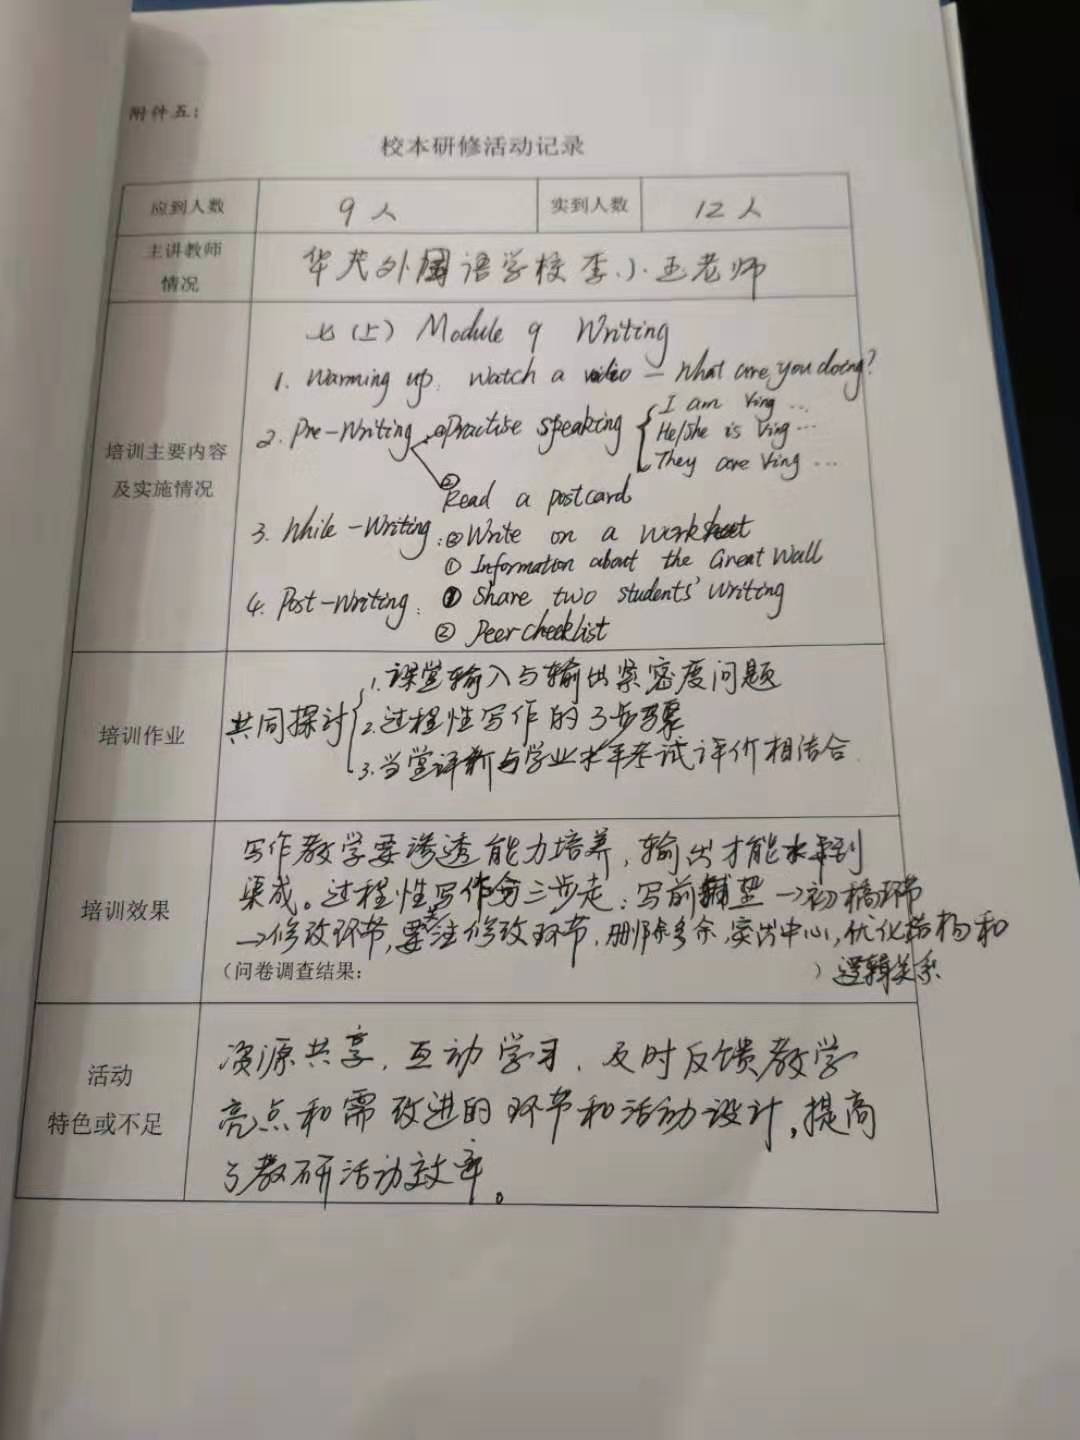 附件五：
校本研修活动记录
应到人数 9人 实到人数 12人
主讲教师
情况
华茂外国语学校李小玉老师
七(上) Module 9 Writing
1. Warming up: Watch a video — What are you doing?
培训主要内容
及实施情况
2. Pre-Writing ①Practise speaking { I am Ving …
He/She is Ving …
They are Ving …
② Read a postcard
3. While-Writing: ② Write on a worksheet
① Information about the Great Wall
4. Post-writing: ① Share two students' writing
② Peer checklist
培训作业
共同探讨
1. 课堂输入与输出紧密度问题
2. 过程性写作的3步骤
3. 当堂评析与学业水平考试评价相结合.
培训效果
写作教学要渗透能力培养，输出才能水到
渠成。过程性写作分三步走：写前铺垫→初稿环节
→修改环节，要关注修改环节，删除多余，突出中心，优化结构和
（问卷调查结果： ） 逻辑关系
活动
特色或不足
资源共享，互动学习，及时反馈教学
亮点和需改进的环节和活动设计，提高
了教研活动效率。